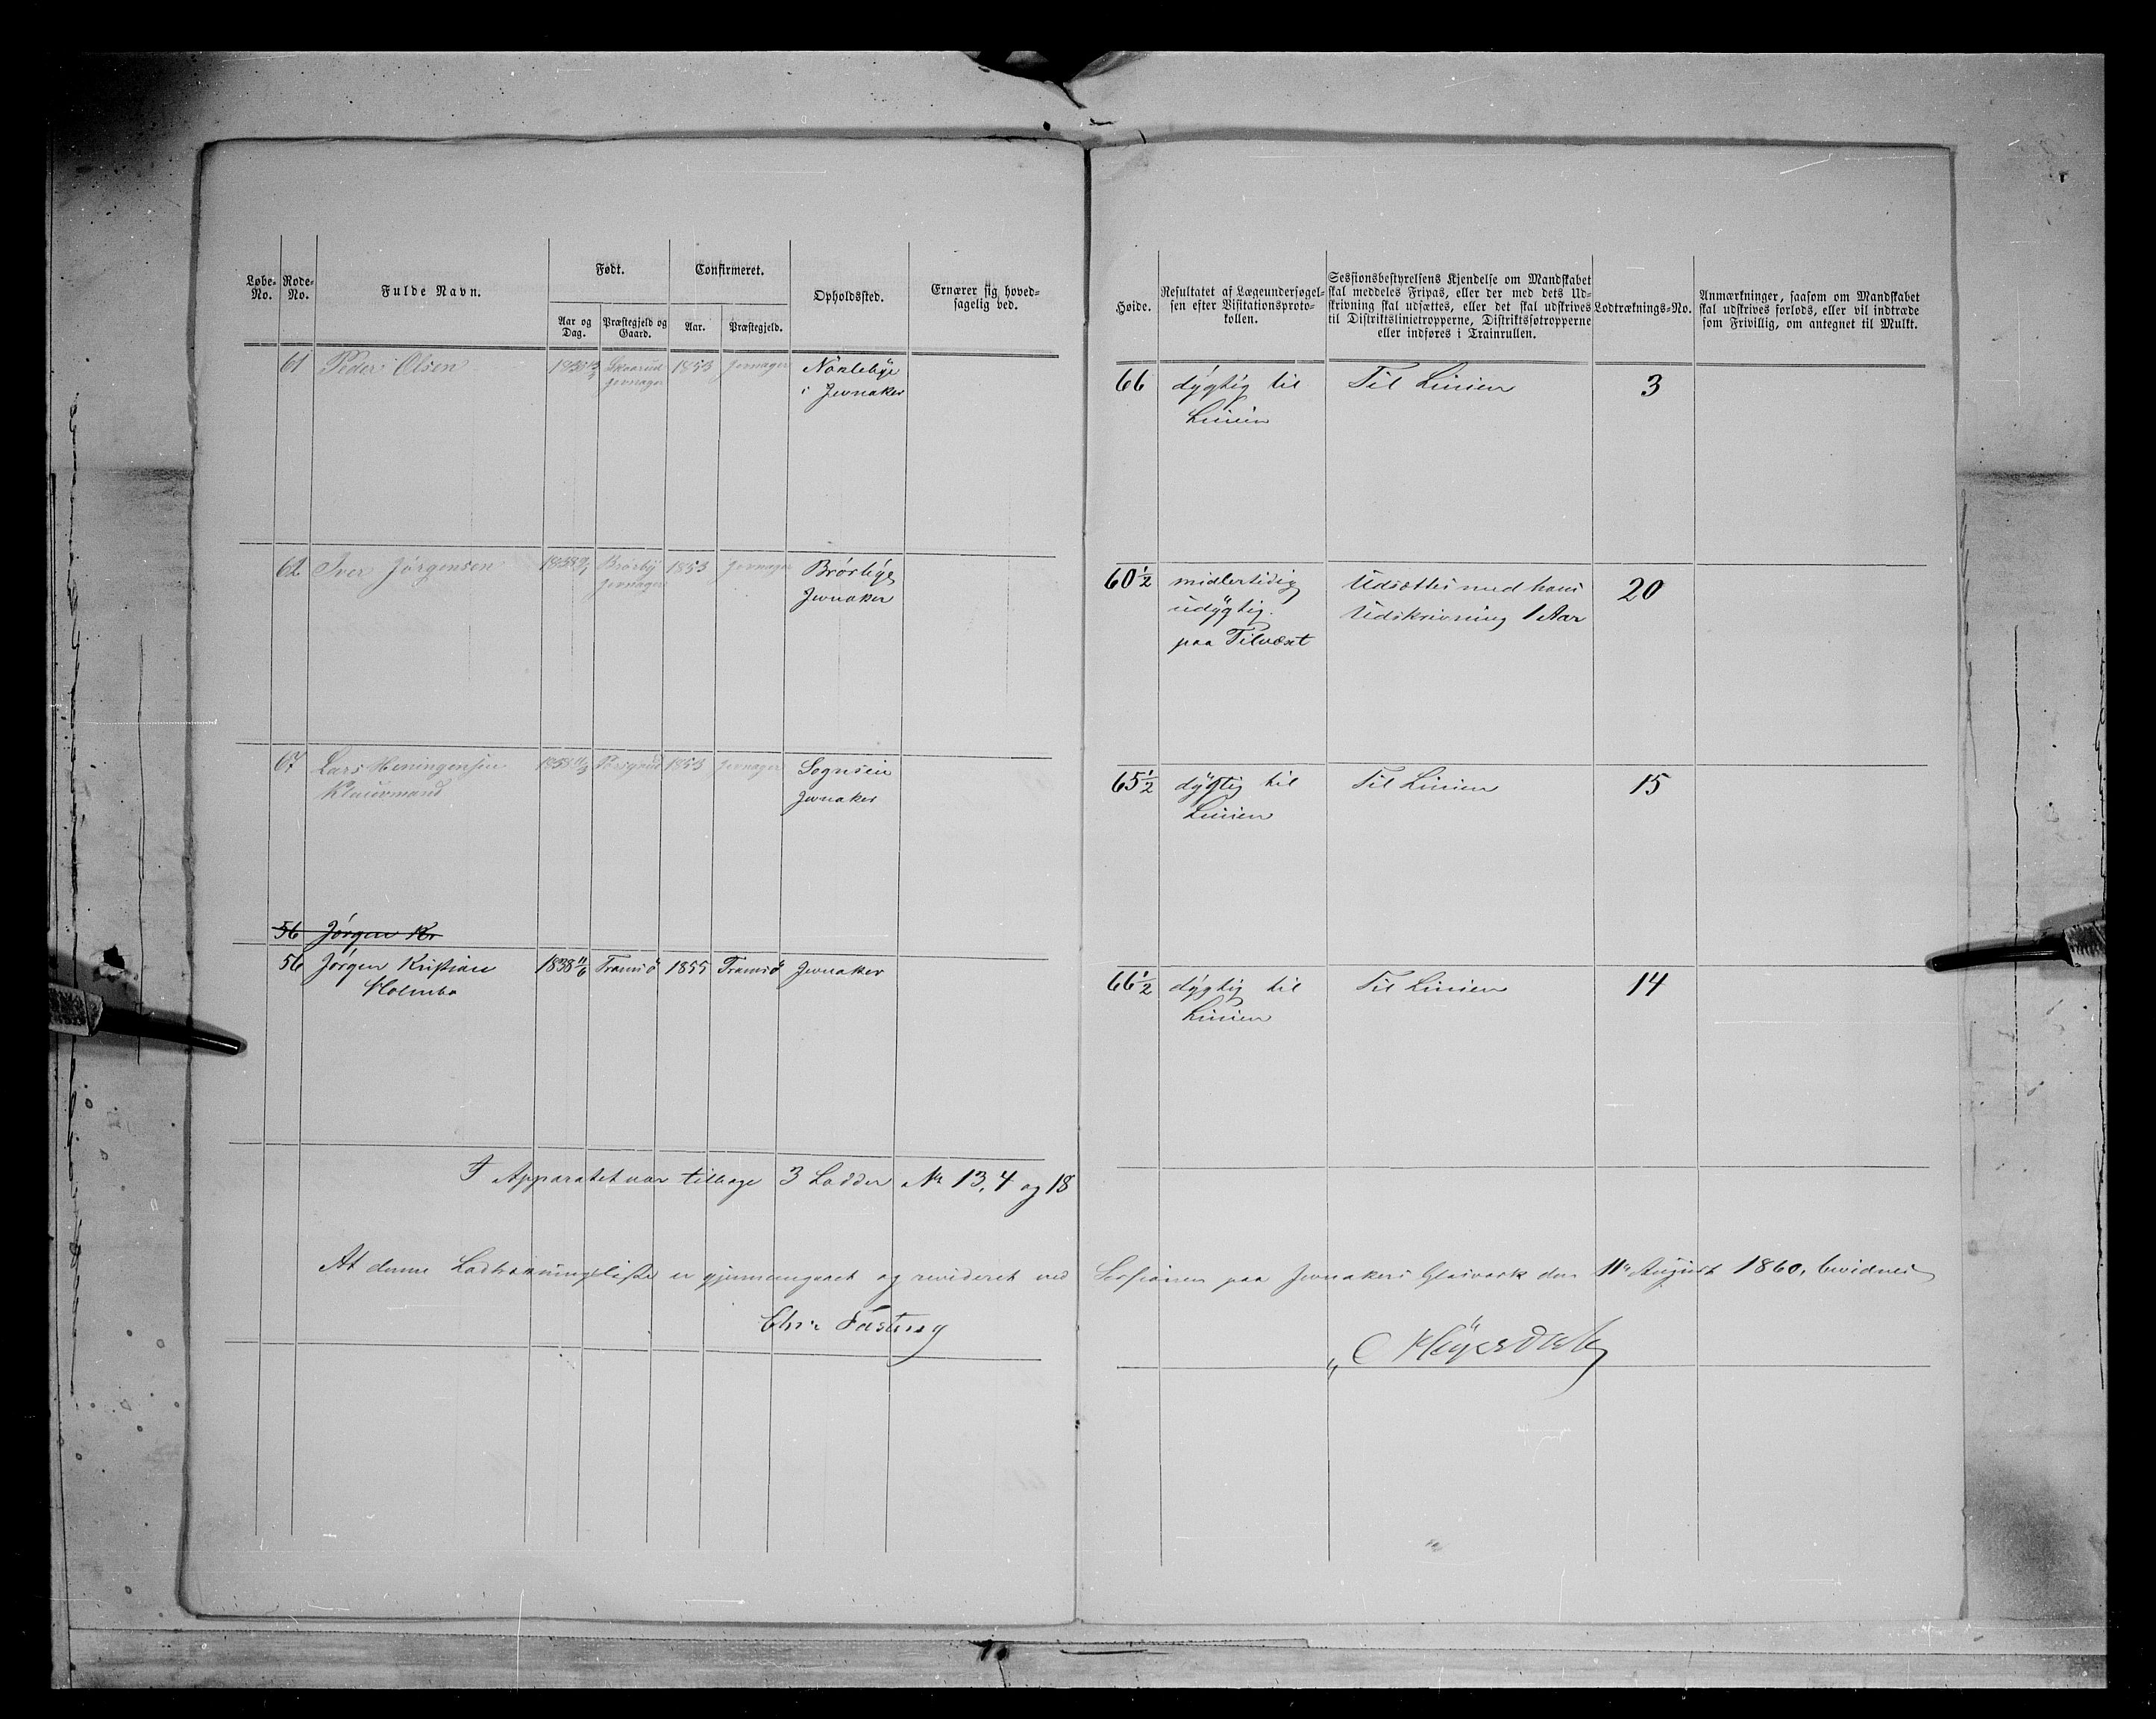 Løbe-No. Rode-No. Fulde Navn. Født. Confirmeret. Opholdssted. Ernærer sig hoved-sagelig ved.
Aar og Dag. Præstegjeld og Gaard. Aar. Præstegjeld.
Høide. Resultatet af Lægeundersøgel-sen efter Visitationsproto-kollen. Sessionsbestyrelsens Kjendelse om Mandskabet skal meddeles Fripas, eller der med dets Ud-skrivning skal udsættes, eller det skal udskrives til Distriktslinietropperne, Distriktssøtropperne eller indføres i Trainrullen. Lodtræknings-No. Anmærkninger, saasom om Mandskabet skal udskrives forlods, eller vil indtræde som Frivillig, om antegnet til Mulkt.
61 Peder Olsen 1853 Jevnager
i Jevnaker
66 dygtig til Til Linien 3
Linien
62 Iver Jørgensen Brørby 1853 Jevnager Brørbye
Jevnager Jevnaker
60 1/2 midlertidig Udsættes med hans 20
udygtig. Udskrivning 1 Aar
paa Tilvæxt
67 Lars Henningensen 1853 Jevnager Sognsein
Jevnaker
65 1/2 dygtig til Til Linien 15
Linien
56 Jørgen Kr
56 Jørgen Kristian 1838 11/6 Tromsö 1855 Tromsö Jevnaker
Holmbo
66 1/2 dygtig til Til Linien 14
Linien
I Apparatet var tilbage 3 Lodder No 13, 4 og 18
At denne Lodtrækningsliste er gjennemgaaet og revideret ved Sessionen paa Jevnakers Glasværk den 11te August 1860, bevidnes
Chr. Fasting